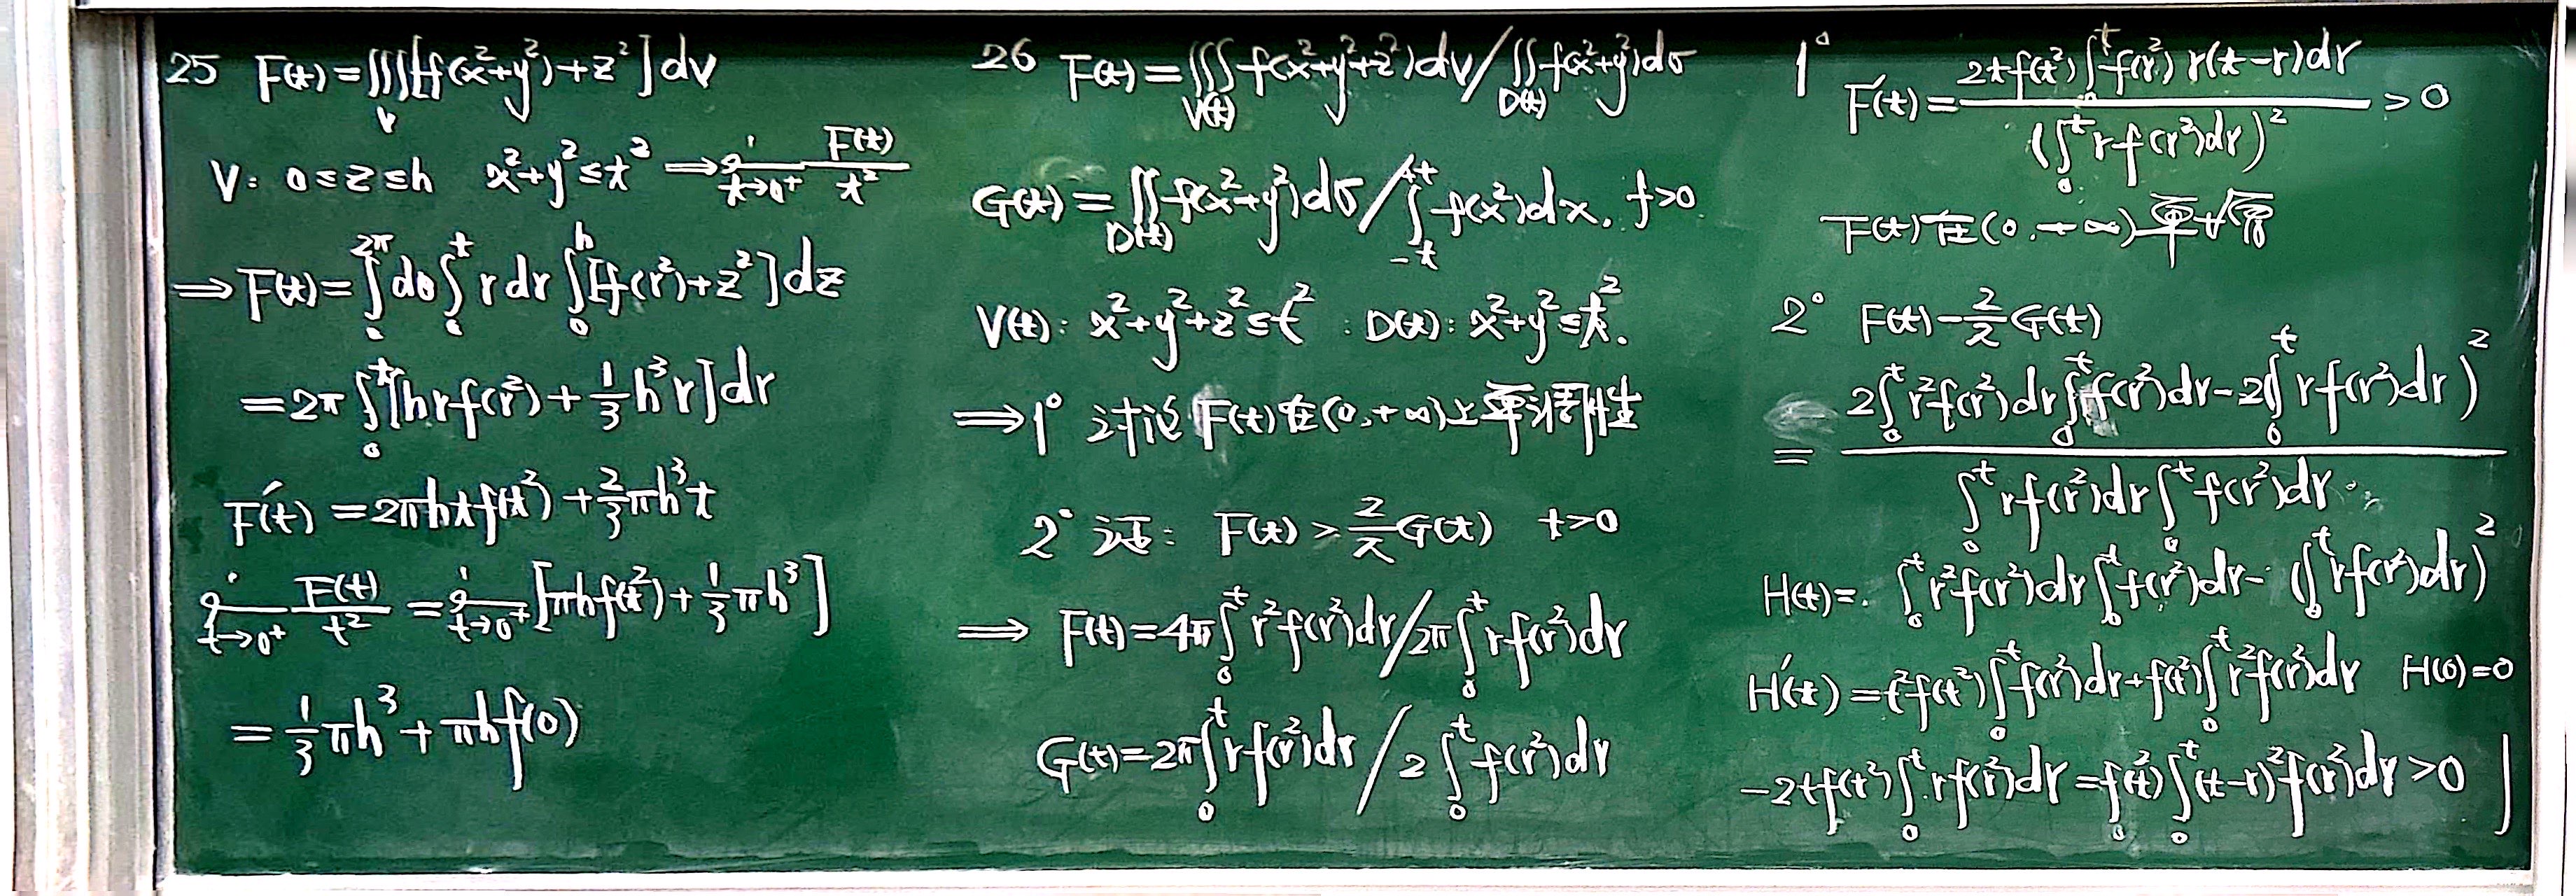 25 F(t)=∭[f(x²+y²)+z²]dv
V
V: 0≤z≤h x²+y²≤t² ⟹ lim t→0⁺ F(t)/t²
⟹F(t)=∫₀^2π dθ∫₀^t r dr ∫₀^h [f(r²)+z²]dz
=2π∫₀^t[hrf(r²)+1/3 h³r]dr
F′(t)=2πhtf(t²)+2/3 πh³t
lim t→0⁺ F(t)/t² = lim t→0⁺ [πhf(t²)+1/3 πh³]
=1/3 πh³+πhf(0)
26 F(t)=∭_V(t) f(x²+y²+z²)dv/∬_D(t) f(x²+y²)dσ
G(t)=∬_D(t) f(x²+y²)dσ/∫_-t^+t f(x²)dx. f>0
V(t): x²+y²+z²≤t² : D(t): x²+y²≤t².
⟹1° 讨论F(t)在(0,+∞)上单调性
2° 证: F(t)>2/π G(t) t>0
⟹ F(t)=4π∫₀^t r²f(r²)dr/2π∫₀^t rf(r²)dr
G(t)=2π∫₀^t rf(r²)dr/2∫₀^t f(r²)dr
1° F′(t)=2tf(t²)∫₀^t f(r²)r(t-r)dr/(∫₀^t rf(r²)dr)²>0
F(t)在(0.+∞)单增
2° F(t)-2/π G(t)
= 2∫₀^t r²f(r²)dr∫₀^t f(r²)dr-2(∫₀^t rf(r²)dr)²
∫₀^t rf(r²)dr∫₀^t f(r²)dr
H(t)=∫₀^t r²f(r²)dr∫₀^t f(r²)dr-(∫₀^t rf(r²)dr)²
H′(t)=t²f(t²)∫₀^t f(r²)dr+f(t²)∫₀^t r²f(r²)dr H(0)=0
-2tf(t²)∫₀^t rf(r²)dr=f(t²)∫₀^t(t-r)²f(r²)dr>0